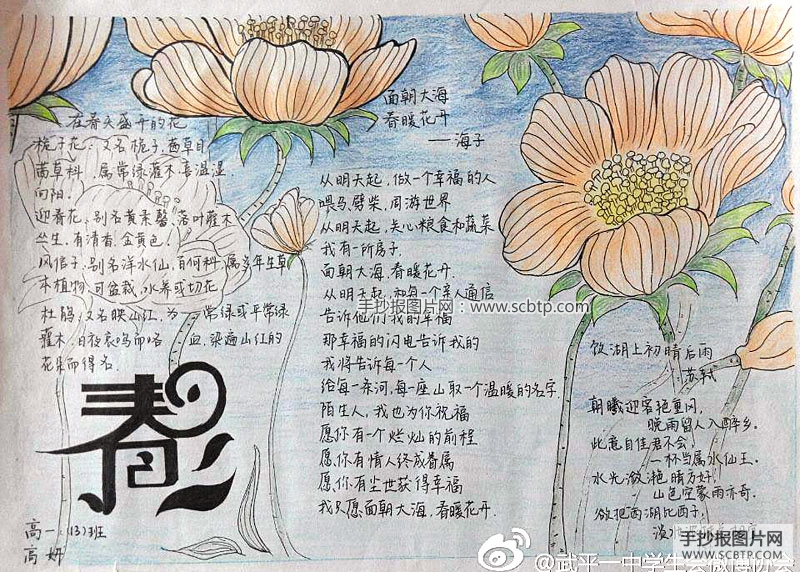 在春天盛开的花
栀子花、又名栀子,茜草目
茜草科,属常绿灌木,喜温湿,
向阳。
迎春花、别名黄素馨、落叶灌木
丛生,有清香、金黄色!
风信子、别名洋水仙,百何科,属多年生草
本植物,可盆栽、水养或切花
杜鹃、又名映山红,为 常绿或平常绿
灌木、 血,染遍山红的
花朵而得名。
春
高一(13)班
高妍
面朝大海
春暖花开
——海子
从明天起,做一个幸福的人
喂马,劈柴,周游世界
从明天起,关心粮食和蔬菜
我有一所房子,
面朝大海,春暖花开.
从明天起,和每一个亲人通信
告诉他们我的幸福
那幸福的闪电告诉我的
我将告诉每一个人
给每一条河,每一座山取一个温暖的名字
陌生人,我也为你祝福
愿你有一个灿灿的前程
愿你有情人终成眷属
愿你有尘世获得幸福
我只愿面朝大海,春暖花开.
手抄报图片网:www.scbtp.com
饮湖上初晴后雨
苏轼
朝曦迎客艳重冈,
晚雨留人入醉乡.
此意自佳君不会,
一杯当属水仙王.
水光潋滟晴方好,
山色空蒙雨亦奇.
欲把西湖比西子,
淡
手抄报图片网
WWW.SCBTP.COM
@武平一中学生会微博协会